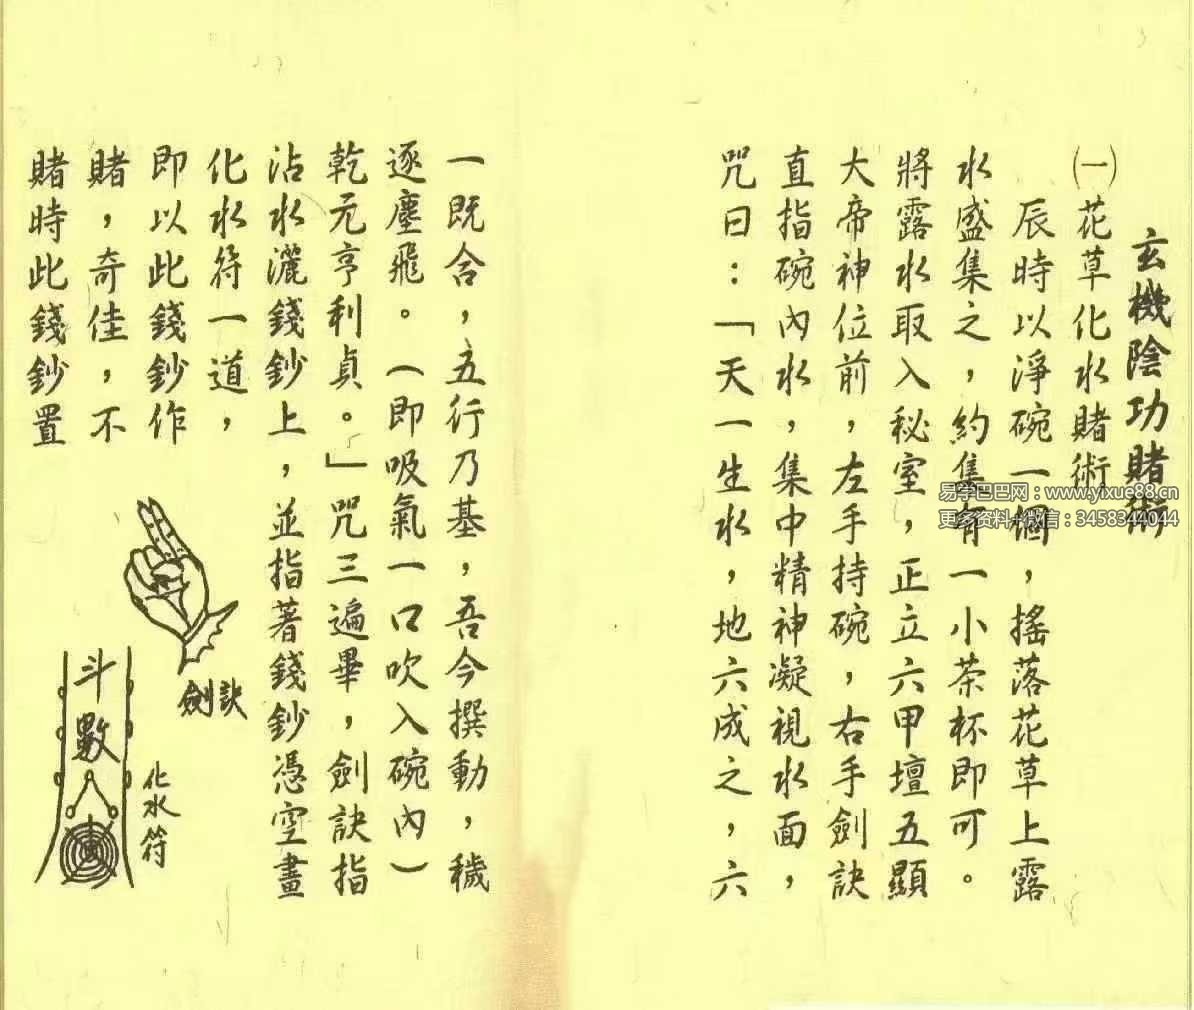 玄機陰功賭術
㈠花草化水賭術
辰時以淨碗一個，搖落花草上露
水盛集之，約集有一小茶杯即可。
將露水取入秘室，正立六甲壇五顯
大帝神位前，左手持碗，右手劍訣
直指碗內水，集中精神凝視水面，
咒曰：「天一生水，地六成之，六
一既合，五行乃基，吾今撰動，穢
逐塵飛。（即吸氣一口吹入碗內）
乾元亨利貞。」咒三遍畢，劍訣指
沾水灑錢鈔上，並指著錢鈔憑空畫
化水符一道，
即以此錢鈔作
賭，奇佳，不
賭時此錢鈔置
劍訣
化水符
斗數
易学巴巴网：www.yixue88.cn
更多资料+微信：3458344044